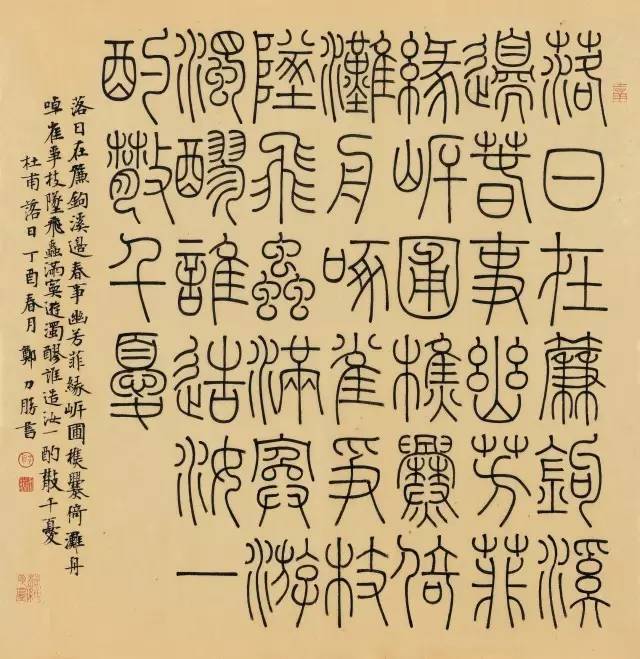 落日在簾鉤溪
邊春事幽芳菲
緣岍圃樵爨倚
灘舟啄雀爭枝
墜飛蟲滿寏游
濁醪誰造汝一
酌散千憂
落日在簾鉤溪邊春事幽芳菲緣岍圃樵爨倚灘舟
啅雀爭枝墜飛蟲滿寏遊濁醪誰造汝一酌散千憂
杜甫落日丁酉春月鄭力勝書